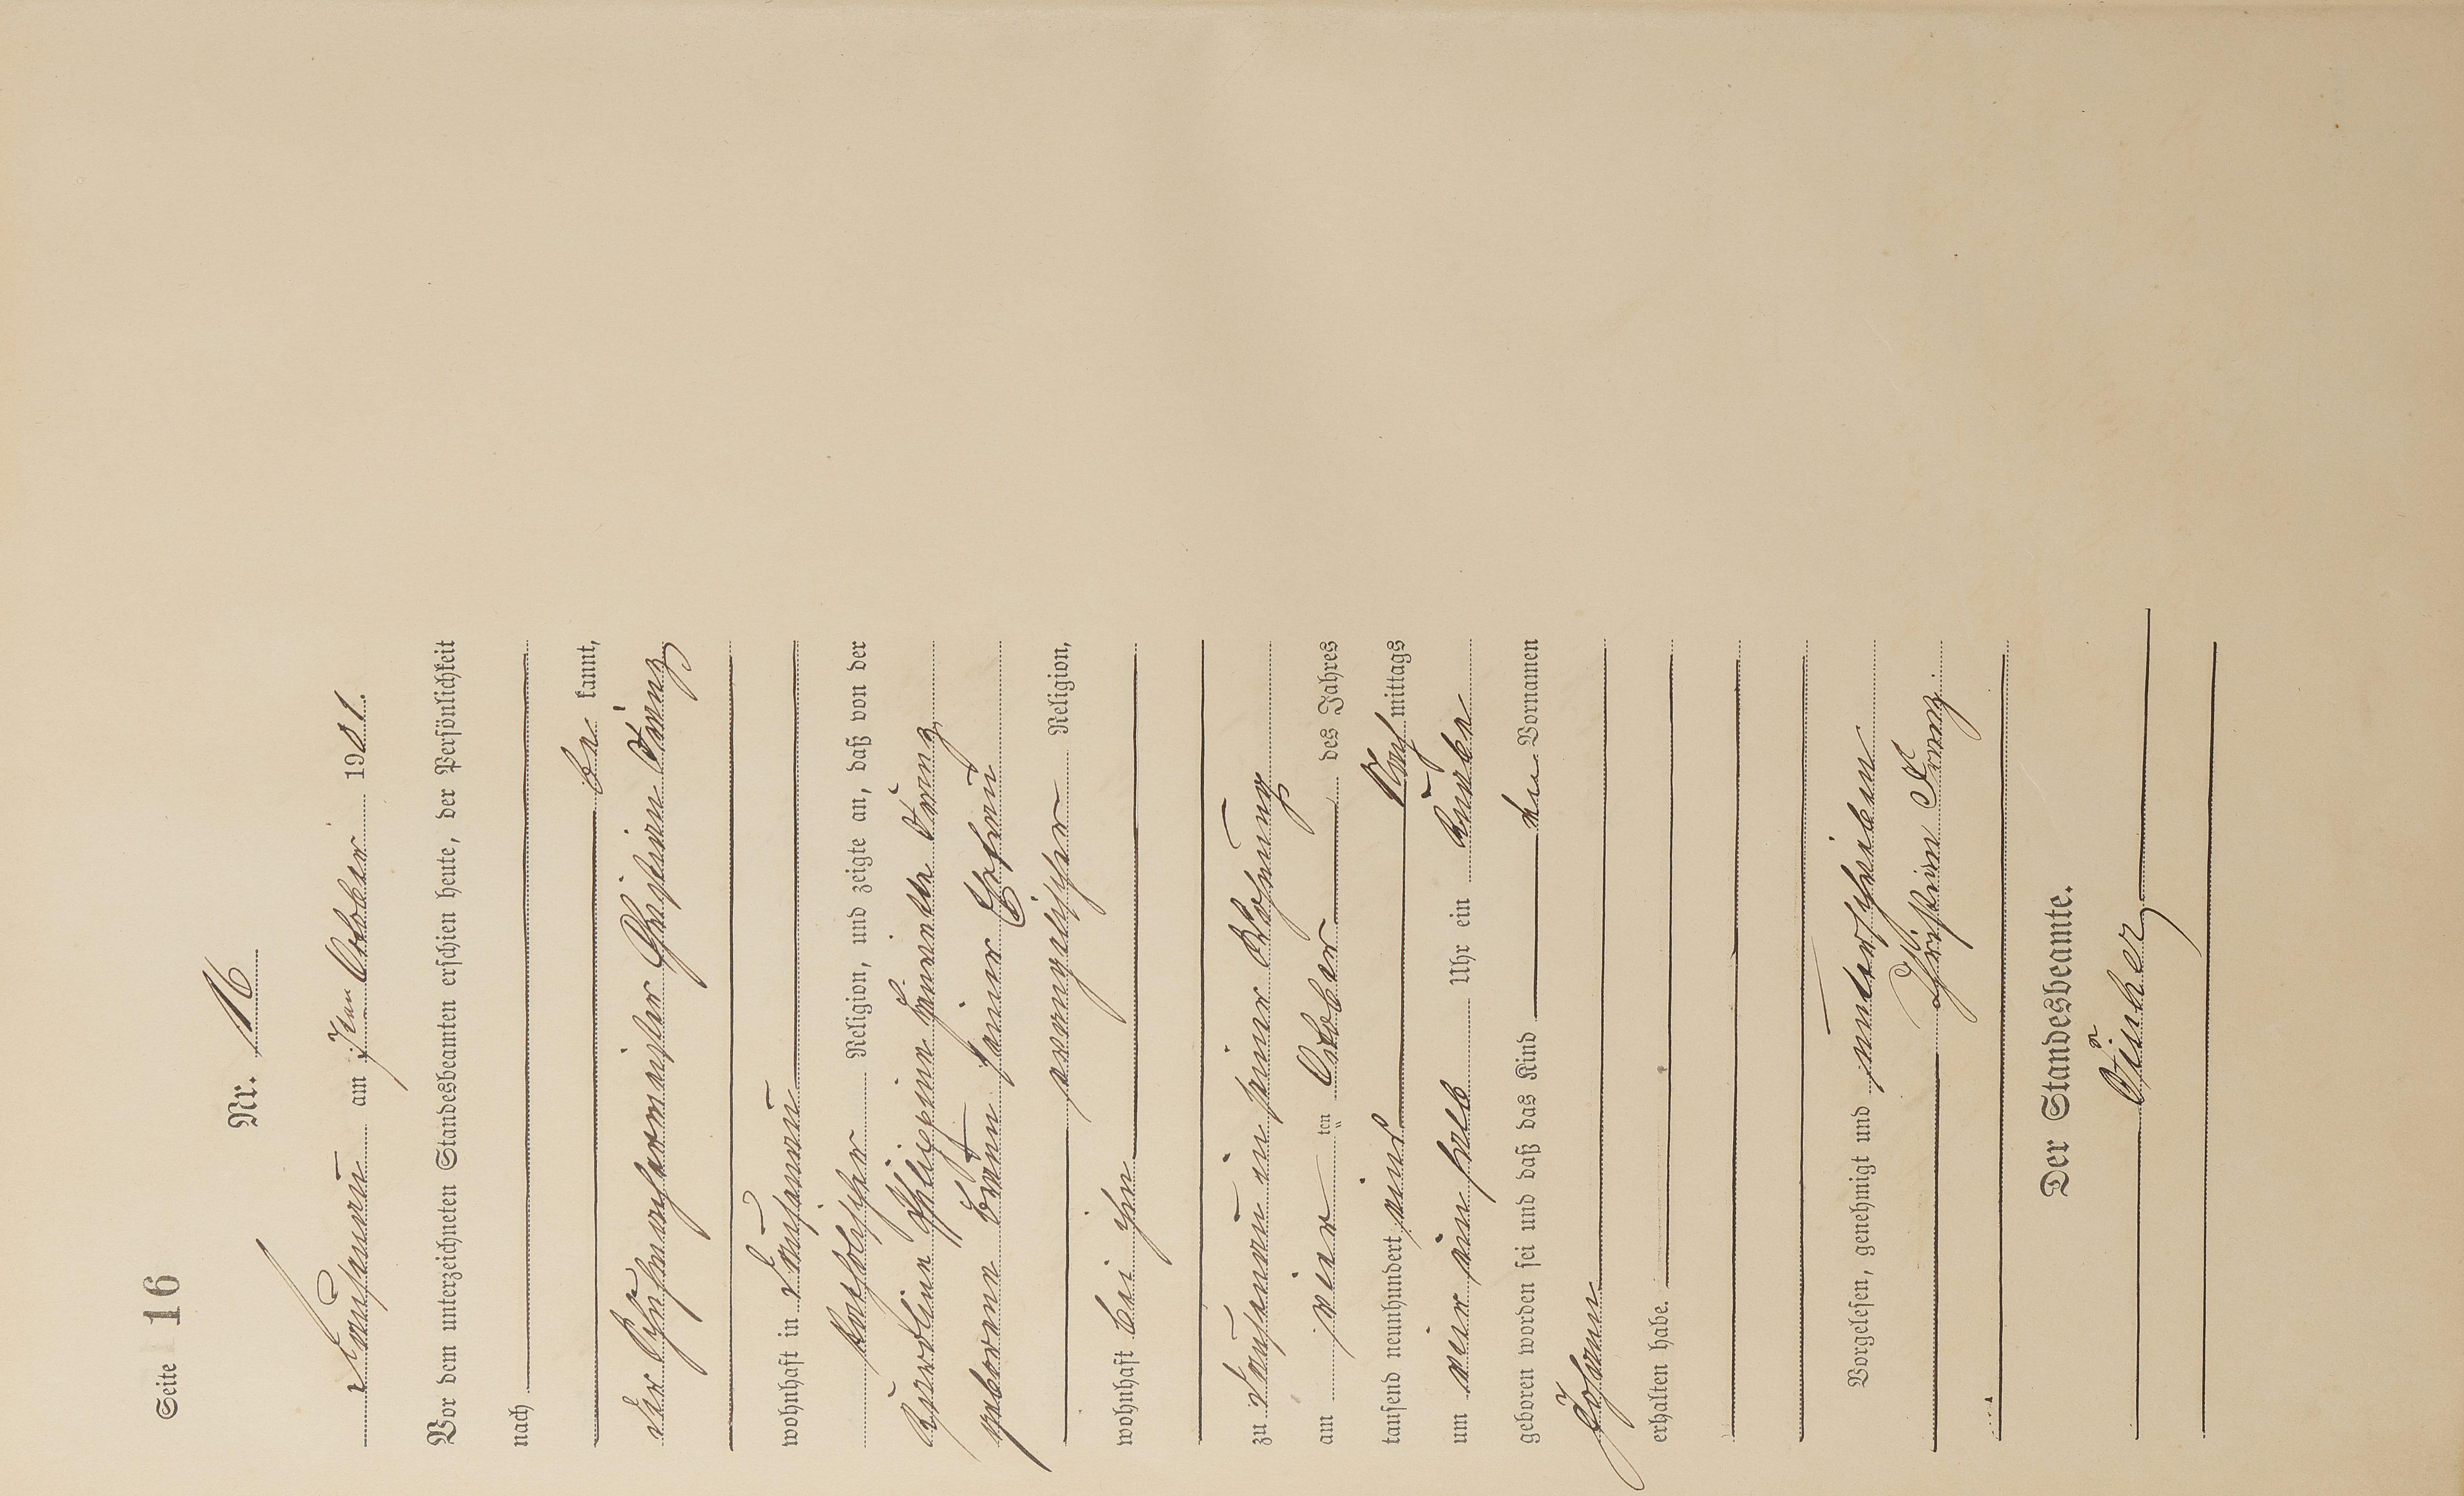 Seite 16
Nr. 16
am 7ten October 1901.
Vor dem unterzeichneten Standesbeamten erschien heute, der Persönlichkeit
nach
be kannt,
der Schuhmachermeister Christian
wohnhaft in
katholischer Religion, und zeigte an, daß von der
Karoline Philippine Henriette
geborene Braun seiner Ehefrau
evangelischer Religion,
wohnhaft bei ihm
zu in seiner Wohnung
am vier ten October des Jahres
tausend neunhundert eins Nach mittags
um vier ein halb Uhr ein Knabe
geboren worden sei und daß das Kind den Vornamen
Johann
erhalten habe.
Vorgelesen, genehmigt und unterschrieben
Christian
Der Standesbeamte.